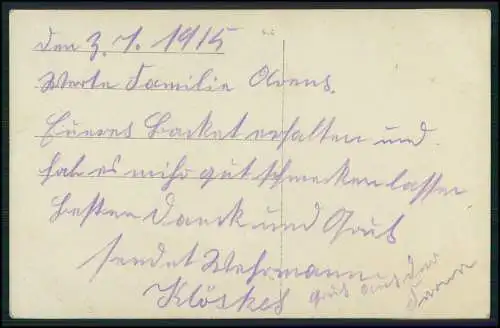 den 3.1.1915
Werte Familie Arens.
Eueres Backet erhalten und
hab es mihr gut schmecken lassen
besten Danck und Gruß
sendet Wehrmann
Klöskes
Gruß aus der